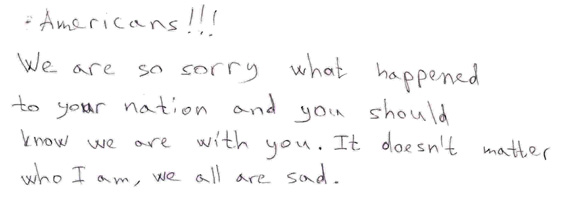 - Americans!!!
We are so sorry what happened
to your nation and you should
know we are with you. It doesn't matter
who I am, we all are sad.